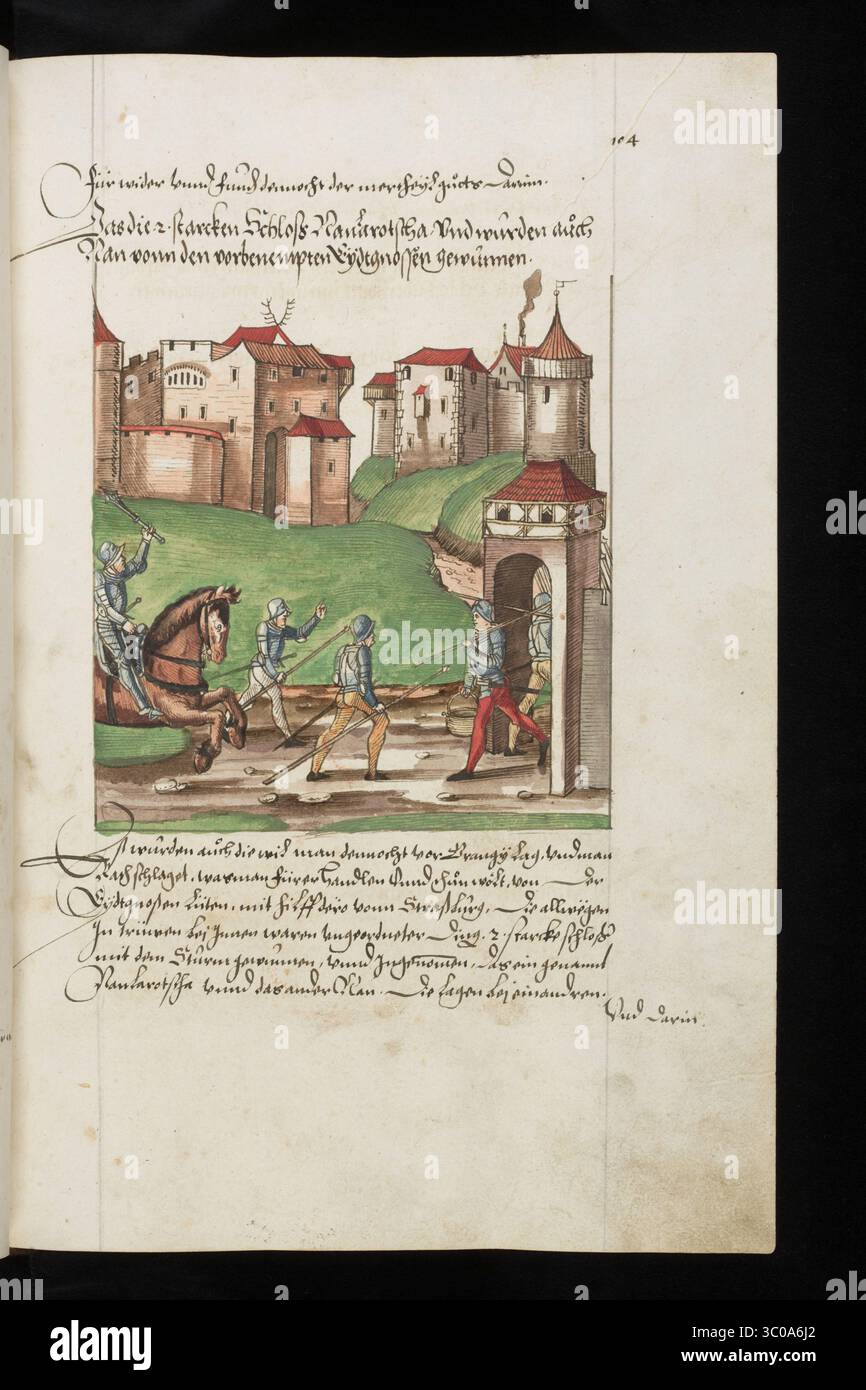 104
für wider vnnd fund dennocht der mercheyl guots Darinn.
Das die 2. starcken Schloss Nanlarotscha. Vnd wurden auch
Nan vonn den vorbenempten Eydtgnossen gewunnen.
Es wurden auch die wil man dennocht vor Grangy lag, vnd man
Rathschlaget, was man fürer handlen vnnd thun wölt, von Der
Eydtgnoßen Lüten, mit hilff dero vonn Straßburg, Die allwegen
In trüwen bej Jnen waren vngeordneter Ding. 2. starcke schloß
mit dem Sturm gewunnen, vnnd Jngenomen, das ein genannt
Nanlarotscha vnnd das ander Nan. Die lagen bej einandren.
Vnd darin
alamy
Image ID: 3C0A6J2
www.alamy.com